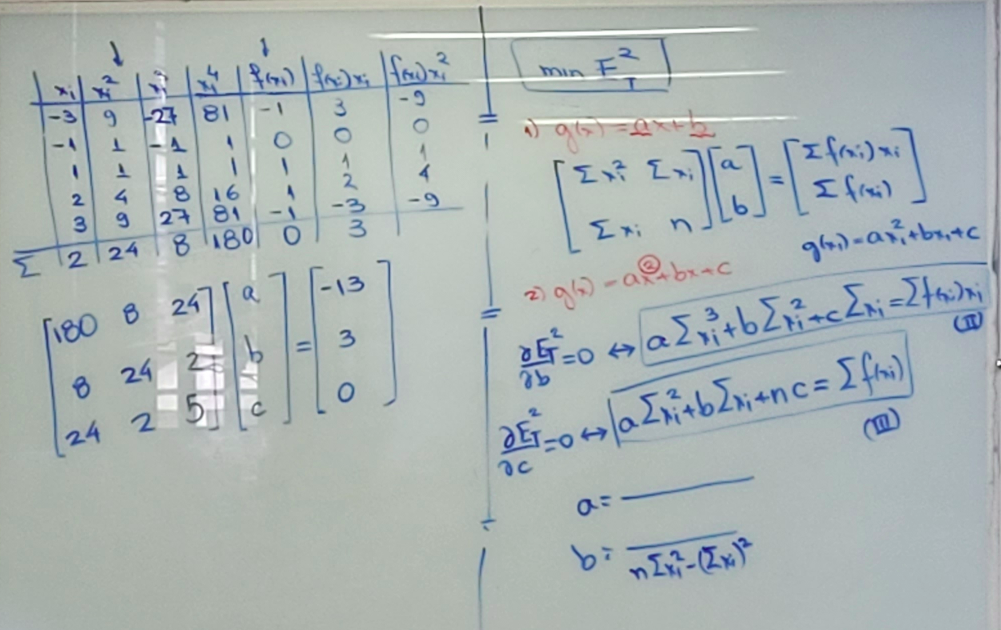 xᵢ | xᵢ² | xᵢ³ | xᵢ⁴ | f(xᵢ) | f(xᵢ)xᵢ | f(xᵢ)xᵢ²
-3 | 9 | -27 | 81 | -1 | 3 | -9
-1 | 1 | -1 | 1 | 0 | 0 | 0
1 | 1 | 1 | 1 | 1 | 1 | 1
2 | 4 | 8 | 16 | 1 | 2 | 4
3 | 9 | 27 | 81 | -1 | -3 | -9
Σ | 2 | 24 | 8 | 180 | 0 | 3
[180 8 24] [a] = [-13]
[8 24 2] [b] = [3]
[24 2 5] [c] = [0]
min E_T²
1) g(x) = ax+b
[Σxᵢ² Σxᵢ] [a] = [Σf(xᵢ)xᵢ]
[Σxᵢ n] [b] = [Σf(xᵢ)]
g(xᵢ)=axᵢ²+bxᵢ+c
2) g(x) = ax²+bx+c
∂E_T²/∂b=0 ↔ aΣxᵢ³+bΣxᵢ²+cΣxᵢ=Σf(xᵢ)xᵢ
(II)
∂E_T²/∂c=0 ↔ aΣxᵢ²+bΣxᵢ+nc=Σf(xᵢ)
(III)
a= ―
b= ―/nΣxᵢ²-(Σxᵢ)²